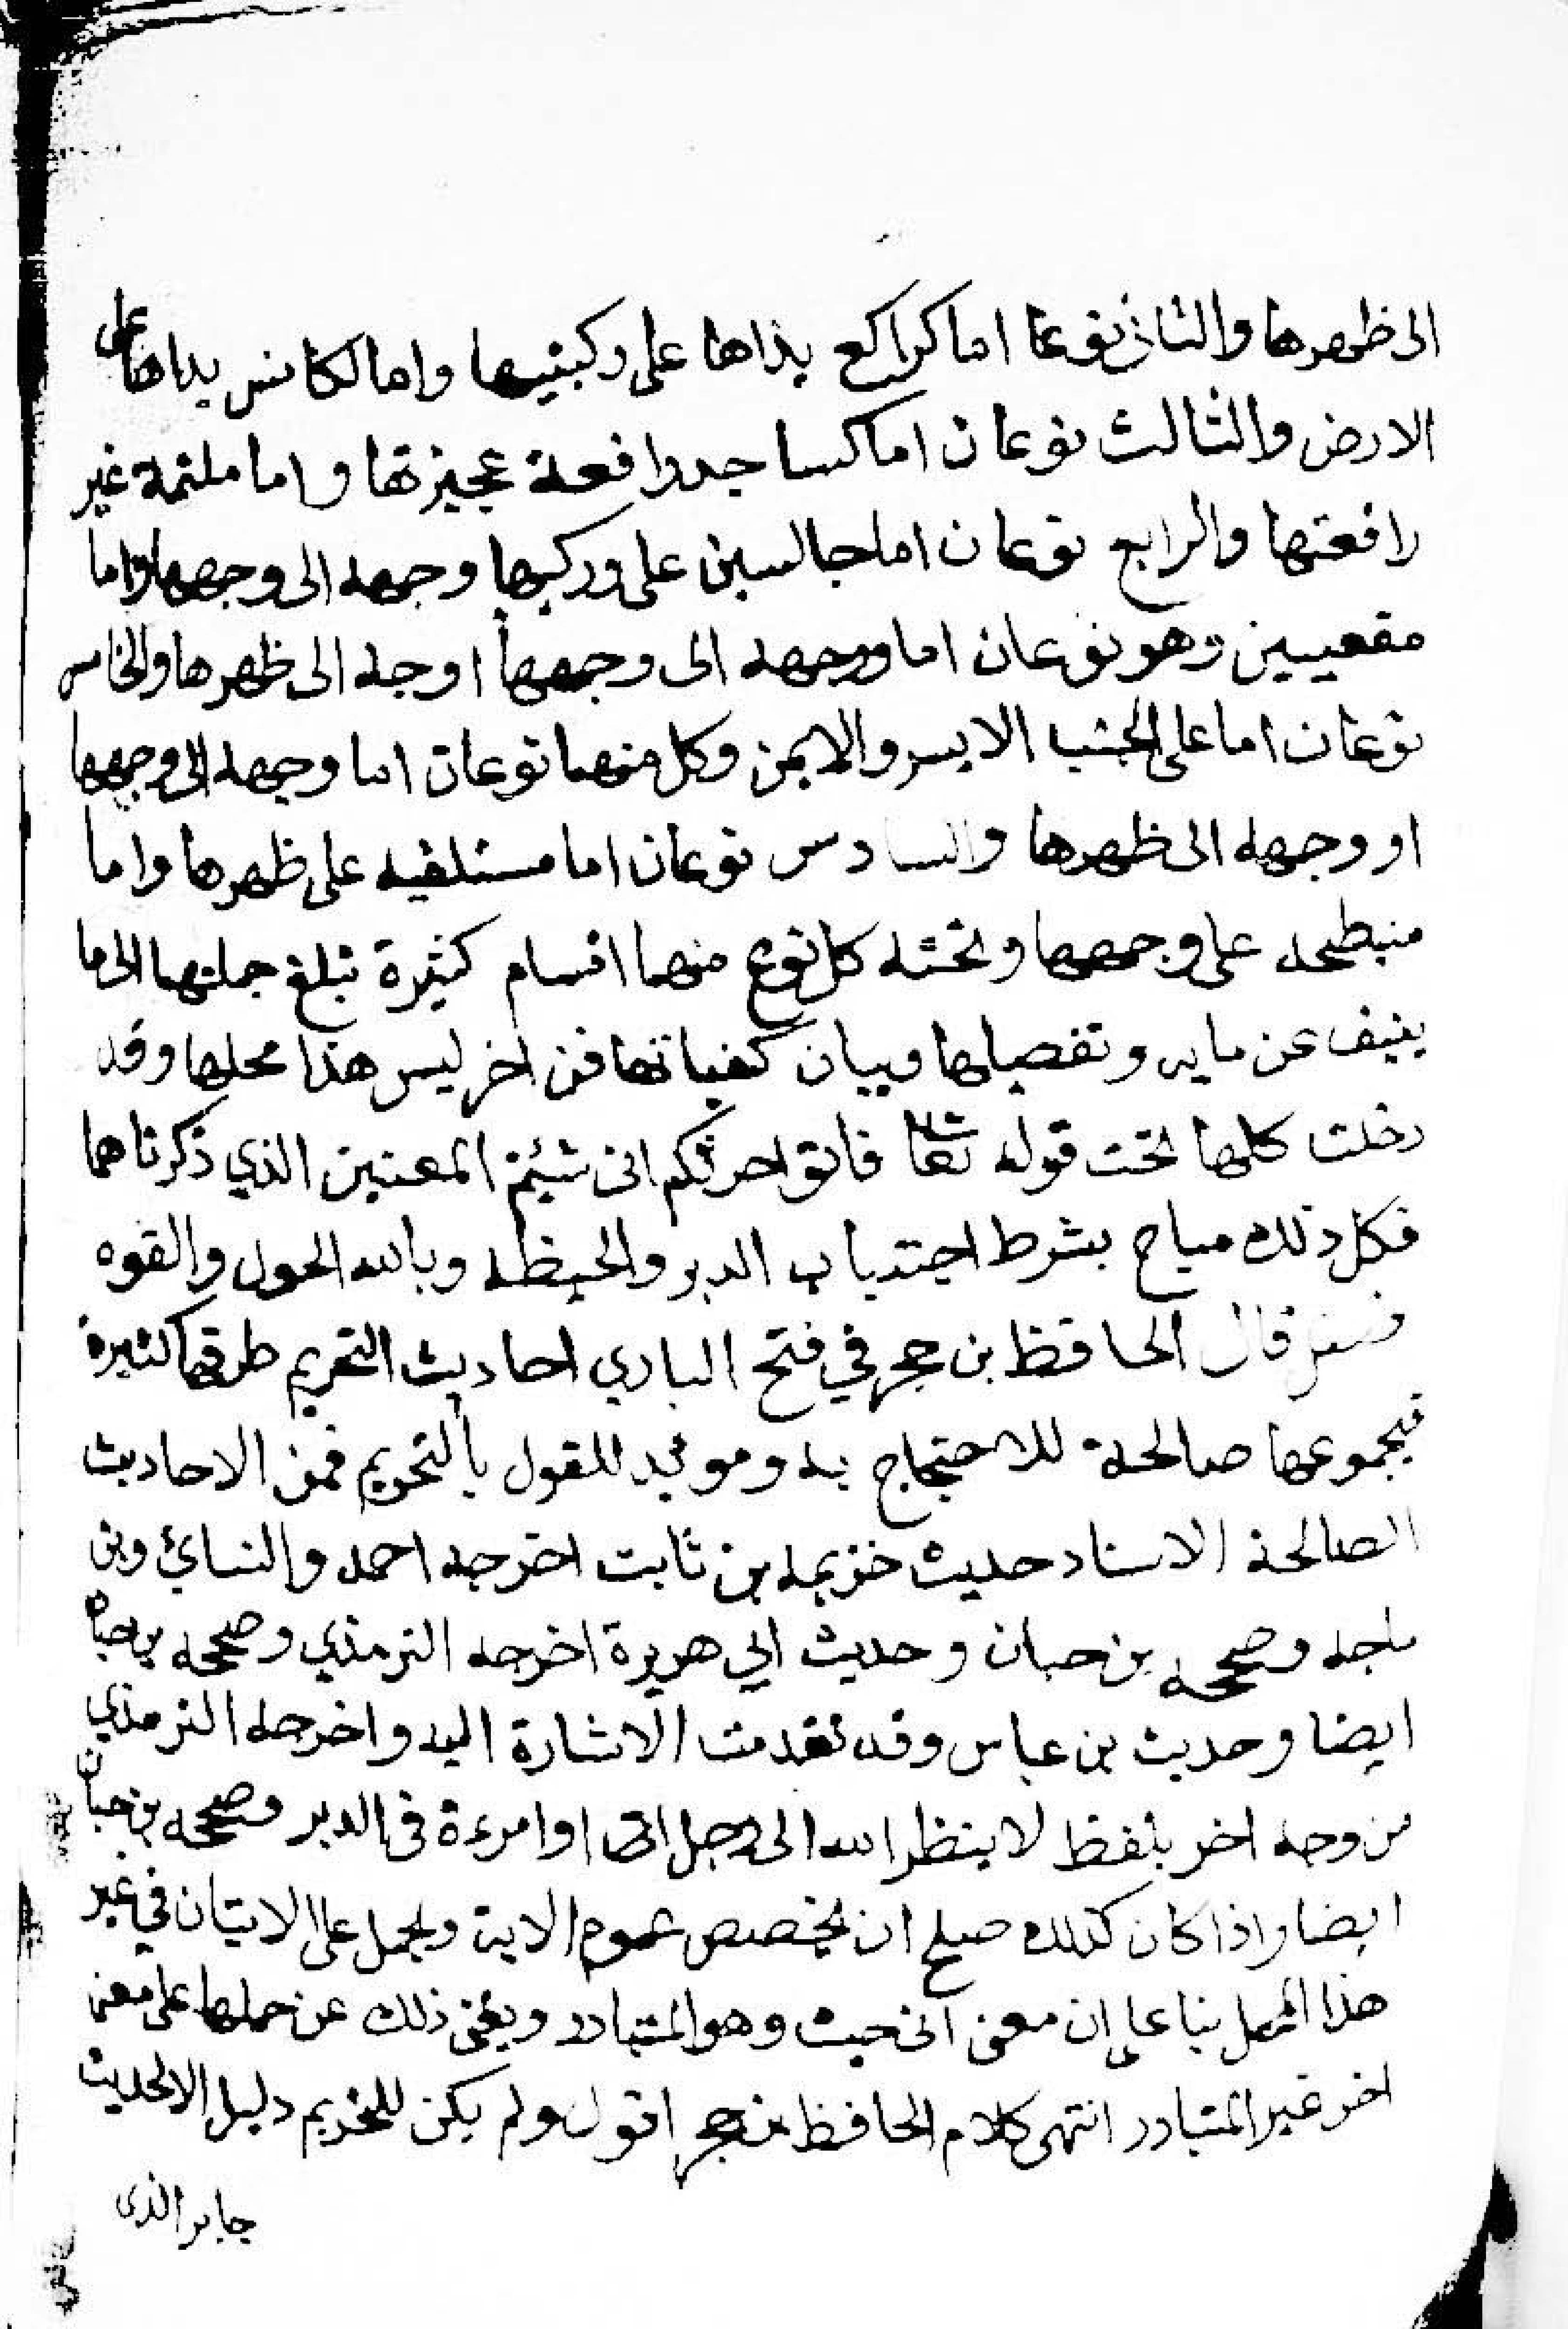 الى ظهرها والثاني نوعا اما كراكع يداها على ركبتيها واما لكانس يداها على
الارض والثالث نوعان اما كساجد رافعة عجيزتها واما ملتمة غير
رافعتها والرابع نوعان اما جالسين على وركيها وجهه الى وجهها واما
مقعيين وهو نوعان اما ووجهه الى وجهها او جه الى ظهرها والخامس
نوعان اما على الجنب الايسر والايمن وكل منهما نوعان اما وجهه الى وجهها
او وجهه الى ظهرها والسادس نوعان اما مستلقيه على ظهرها واما
منبطحه على وجهها وتحته كل نوع منهما اقسام كثيرة تبلغ جملتها الى ما
ينيف عن مايه وتفصيلها وبيان كفياتها فن اخر ليس هذا محلها وقد
دخلت كلها تحت قوله تعالى فاتو احرثكم انى شيتم المعنين الذي ذكرناهما
فكل ذلك مباح بشرط اجتناب الدبر والحيظه وبالله الحول والقوه
قال الحافظ بن حجر في فتح الباري احاديث التحريم طرقها كثيرة
فبجموعها صالحة للاحتجاج به ومويد للقول بالتحريم فمن الاحاديث
الصالحة الاسناد حديث خزيمه بن ثابت اخرجه احمد والنسائي وبن
ماجه وصححه بن حبان وحديث ابي هريرة اخرجه الترمذي وصححه بن حبان
ايضا وحديث بن عباس وقد تقدمت الاشارة اليه واخرجه الترمذي
من وجه اخر بلفظ لا ينظر الله الى رجل اتى او امرءة في الدبر وصححه بن حبان
ايضا واذا كان كذلك صلح ان يخصص عموم الاية ويحمل على الاتيان في غير
هذا المحل بنا على ان معنى انى حيث وهو المتبادر ويغني ذلك عن حملها على معنى
اخر غير المتبادر انتهى كلام الحافظ بن حجر اقول ولم يكن للتحريم دليل الا لحديث
جابر الذى